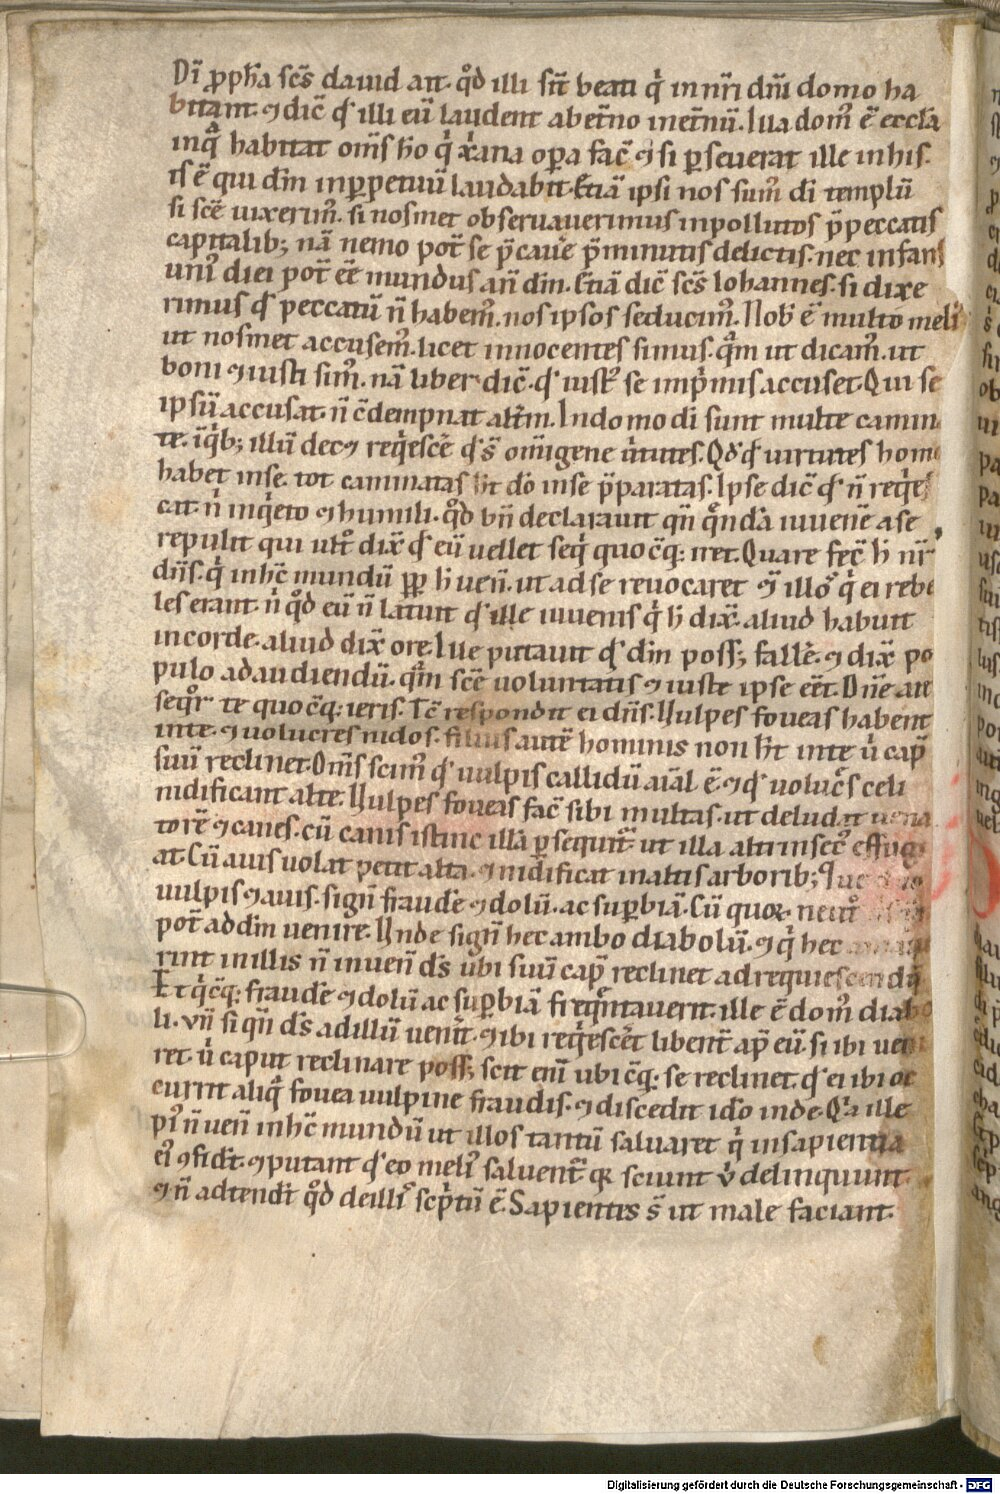 Di͞ ꝓph̄a scs̄ dauid aıt. qͦd illi sn̄t beati qͥ in nr̄i dn̄i domo ha
bitant. ⁊ dic̄ qđ illi eū laudent ab et̄no in et̄nū. Illa domꝰ ē eccl̄a
inqͣ habitat om̄s h̄o qͥ xͥana oꝑa fac̄ ⁊ si ꝑseuerat ille in his.
is ē qui dm̄ inꝑpetuū laudabit. Etiā ipsi nos sumꝰ di͞ templū
si sc̄e uixerimꝰ. si nosmet obseruauerimus inpollutos p̄ peccatis
capitalibꝫ nā nemo pot̄ se p̄cauēe p̄ minutis delictis. nec infans
uniꝰ diei pot̄ eē mundus an̄ dm̄. Etiā dic̄ scs̄ Iohannes. si dixe
rimus qđ peccatū n̄ habemꝰ. nos ipsos seducimꝰ. Nob̄ ē multo meliꝰ
ut nosmet accusemꝰ. licet innocentes simus. qͣm ut dicamꝰ. ut
boni ⁊ iusti simꝰ. nā liber dic̄. qđ iustꝰ se inpͥmis accuset. Qui se
ipsū accusat. n̄ c̄dempnat alt̄m. In domo di͞ sunt multe camin
te. īqͥbꝫ illū dec⁊ reqͥescēe qđ s̄ om̄igene uͥtutes. Qđ qđ uirtutes homo
habet in se. tot caminatas h̄t do͞ in se p̄paratas. Ipse dic̄ qđ n̄ reqͥes
cat. nͥ inqͥeto ⁊ humili. qͦd bn̄ declarauit qn̄ qͦnda̅ iuuenē a se
repulit qui ultͦ dix̄ qđ eū uellet seqͥ quocūqꝫ iret. Quare fec̄ h̄ nr̄
dn̄s. qͥ in hc̄ mundū ꝓpt̄ h̄ uen̄. ut ad se reuocaret om̄s illoꝰ qͥ ei rebe
les erant. nͥ qͦd eū n̄ latuit qđ ille iuuenis qͥ h̄ dix̄. aliud habuit
in corde. aliud dix̄ ore. Ille putauit qđ dm̄ possꝫ fallēe. ⁊ dix̄ po
pulo ad audiendū. qͣm sc̄e uoluntatis ⁊ iuste ipse eēt. Dn̄e aıt
seqͦr te quoc̄qꝫ ieris. Tc̄ respondit ei dn̄s. Uulpes foueas habent
in te. ⁊ uolucres nidos. filius autē hominis non h̄t in te uͥ cap̄
suū reclinet. Om̄s scimꝰ qđ uulpis callidū aīal ē. ⁊ qđ uolucͤs celi
nidificant alte. Uulpes foueas fac̄ sibi multas. ut deludat uena
torē ⁊ canes. cū canis istinc illā ꝑsequitͬ ut illa altrinsecꝰ effugi
at. Cū auis uolat petit alta. ⁊ nidificat in altis arboribꝫ
uulpis ⁊ auis. sign̄ fraudē ⁊ dolū. ac suꝑbiā. Cū quoꝝ neutͦ
pot̄ ad dm̄ uenire. Unde sign̄ hec ambo diabolū. ⁊ qͥ hec
rint in illis n̄ inuen̄ ds̄ ubi suū cap̄ reclinet ad requiescendū
Et qͥc̄qꝫ fraudē ⁊ dolū ac suꝑbiā freqͤntauerit. ille ē domꝰ diabo
li. Vn̄ si qn̄ ds̄ ad illū uen̄it. ⁊ ibi reqͥescēet libent̄ ap̄ eū. si ibi ueni
ret. uͥ caput reclinare possꝫ scit enī ubic̄qꝫ se reclinet. qđ ei ibi oc
currit aliqͣ fouea uulpine fraudis. ⁊ discedit ido͞ inde. Qͣa ille
piꝰ n̄ uen̄ in hc̄ mundū ut illos tantū saluaret qͥ in sapientia
eiꝰ ꝯfidt̄. ⁊ putant qđ eo meliꝰ saluentͬ qꝛ sciunt uͥ delinquunt
⁊ n̄ adtendt̄ qͦd de illiꝰ scͥptū ē. Sapientes s̄ ut male faciant.
Digitalisierung gefördert durch die Deutsche Forschungsgemeinschaft - DFG